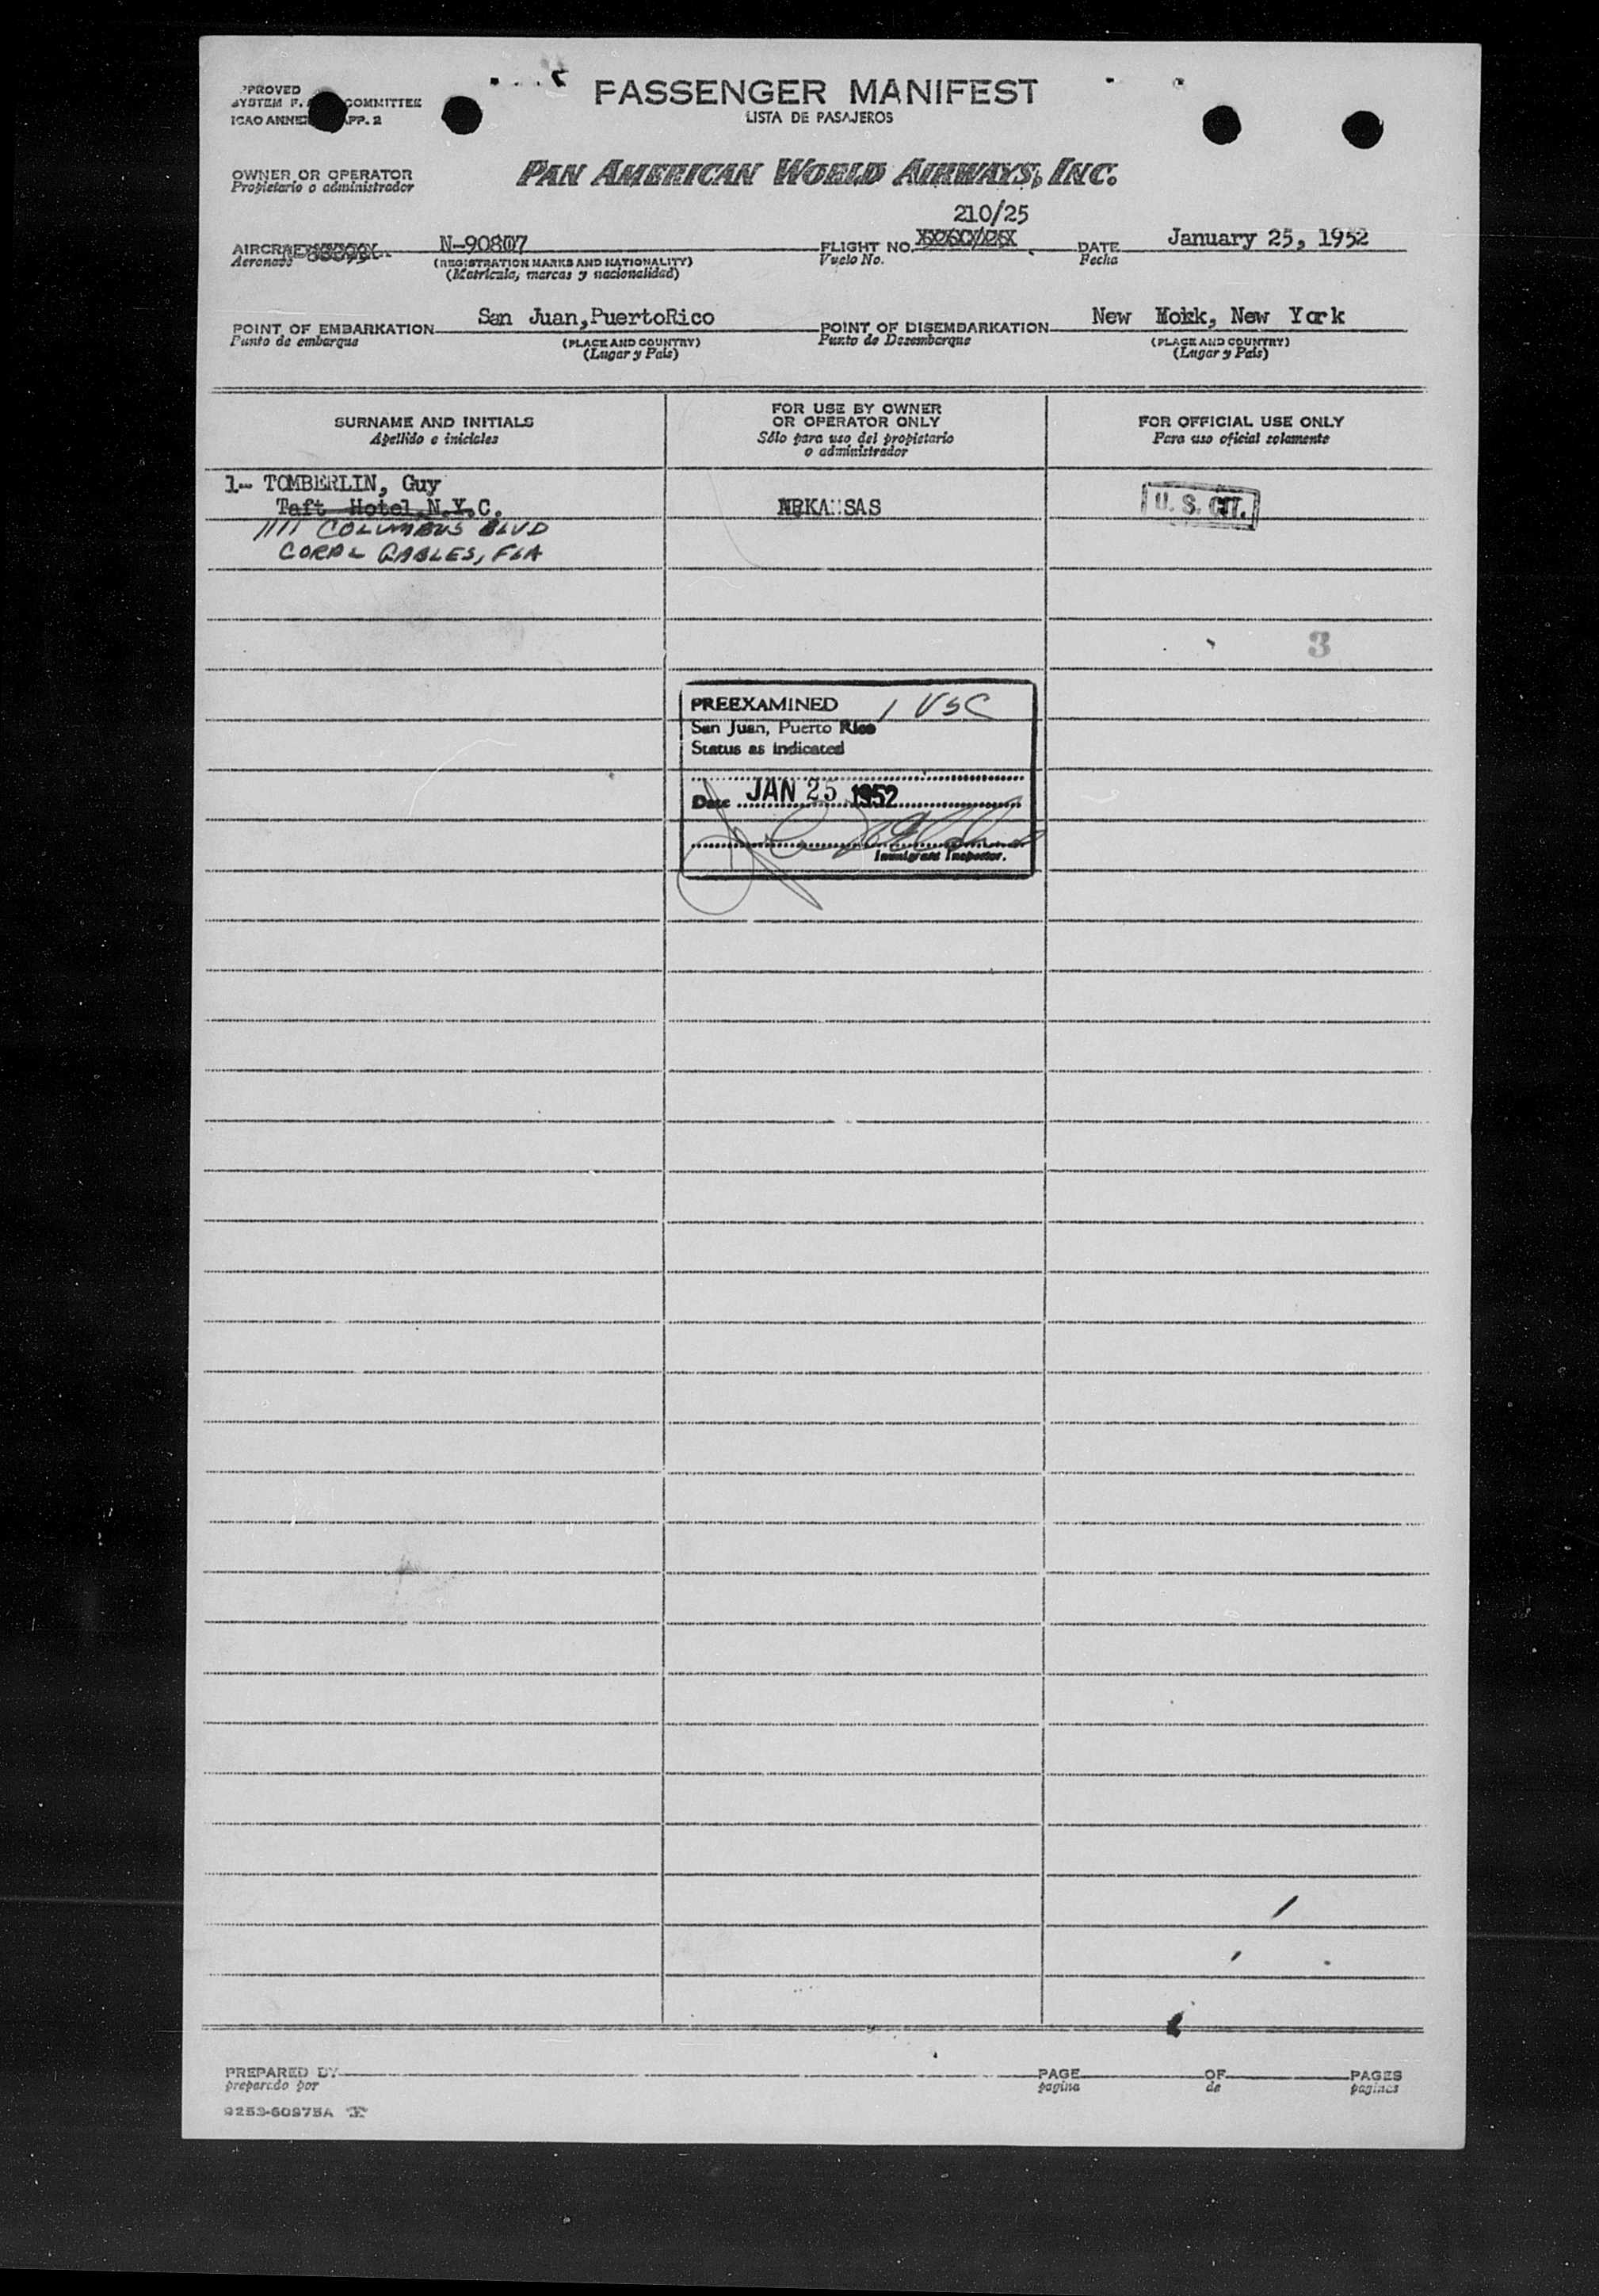 PASSENGER MANIFEST
LISTA DE PASAJEROS
PPROVED
SYSTEM F. COMMITTEE
ICAO ANNEX APP. 2
OWNER OR OPERATOR
Propietario o administrador
PAN AMERICAN WORLD AIRWAYS, INC.
210/25
AIRCRAFT N-90807 FLIGHT NO. DATE January 25, 1952
Aeronave (REGISTRATION MARKS AND NATIONALITY) Vuelo No. Fecha
(Matrícula, marcas y nacionalidad)
POINT OF EMBARKATION San Juan,PuertoRico POINT OF DISEMBARKATION New York, New York
Punto de embarque (PLACE AND COUNTRY) Punto de Desembarque (PLACE AND COUNTRY)
(Lugar y País) (Lugar y País)
SURNAME AND INITIALS
Apellido e iniciales
FOR USE BY OWNER
OR OPERATOR ONLY
Sólo para uso del propietario
o administrador
FOR OFFICIAL USE ONLY
Para uso oficial solamente
1- TOMBERLIN, Guy
Taft Hotel N.Y.C. ARKANSAS U. S. CIT.
1111 COLUMBUS BLVD
CORAL GABLES, FLA
3
PREEXAMINED 1 USC
San Juan, Puerto Rico
Status as indicated
Date JAN 25 1952
Immigrant Inspector.
PREPARED BY PAGE OF PAGES
preparado por pagina de paginas
9253-60975A